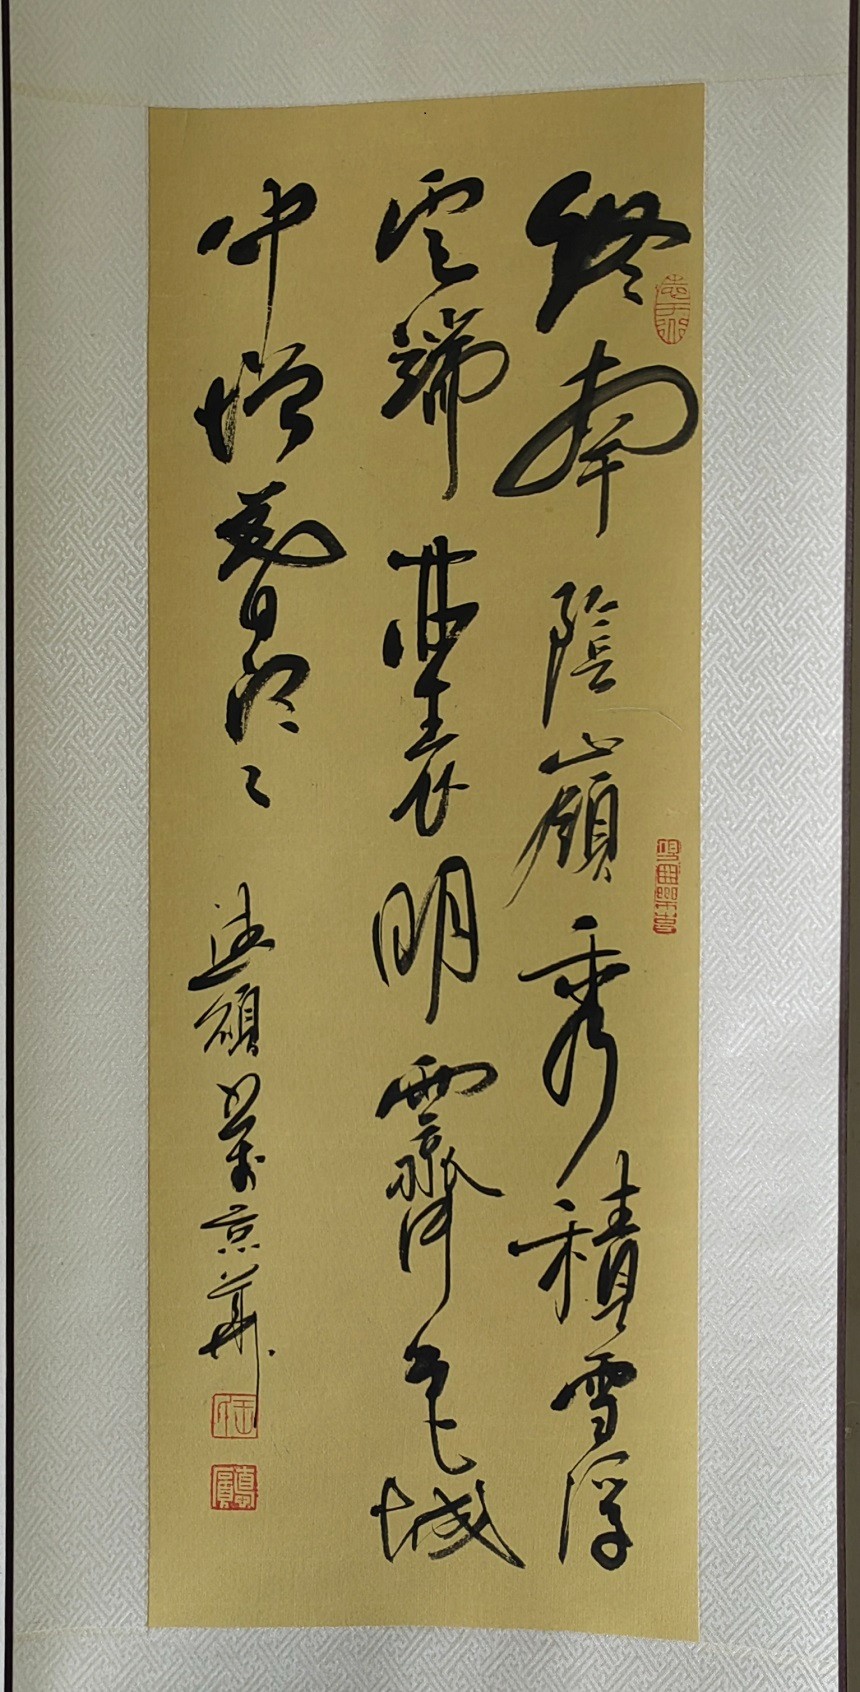 終南陰嶺秀積雪浮
雲端林表明霽色城
中增暮寒
京華